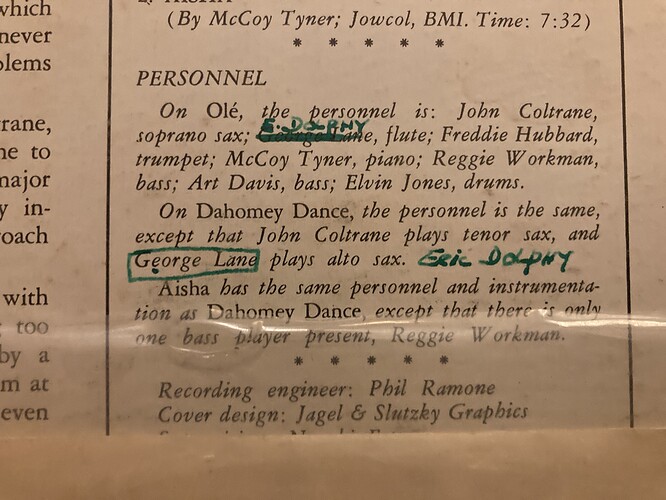 which
never
blems
rane,
ne to
major
y in-
roach
with
too
by a
m at
even
(By McCoy Tyner; Jowcol, BMI. Time: 7:32)
* * * * *
PERSONNEL
On Olé, the personnel is: John Coltrane,
E. DOLPHY
soprano sax; George Lane, flute; Freddie Hubbard,
trumpet; McCoy Tyner, piano; Reggie Workman,
bass; Art Davis, bass; Elvin Jones, drums.
On Dahomey Dance, the personnel is the same,
except that John Coltrane plays tenor sax, and
George Lane plays alto sax. Eric DOLPHY
Aisha has the same personnel and instrumenta-
tion as Dahomey Dance, except that there is only
one bass player present, Reggie Workman.
* * * * *
Recording engineer: Phil Ramone
Cover design: Jagel & Slutzky Graphics